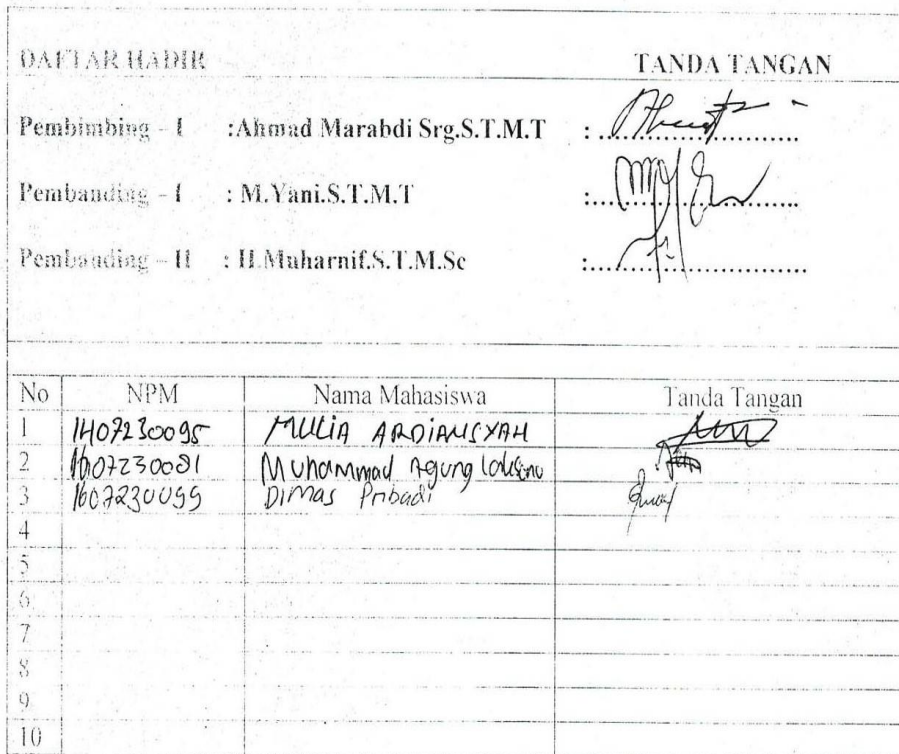 DAFTAR HADIR TANDA TANGAN
Pembimbing – I :Ahmad Marabdi Srg.S.T.M.T : ..............................
Pembanding – I : M.Yani.S.T.M.T :..............................
Pembanding – II : H.Muharnif.S.T.M.Sc :..............................
No NPM Nama Mahasiswa Tanda Tangan
1 1407230095 MULIA ARDIANSYAH
2 1607230081 Muhammad Agung
3 1607230099 Dimas Pribadi
4
5
6
7
8
9
10